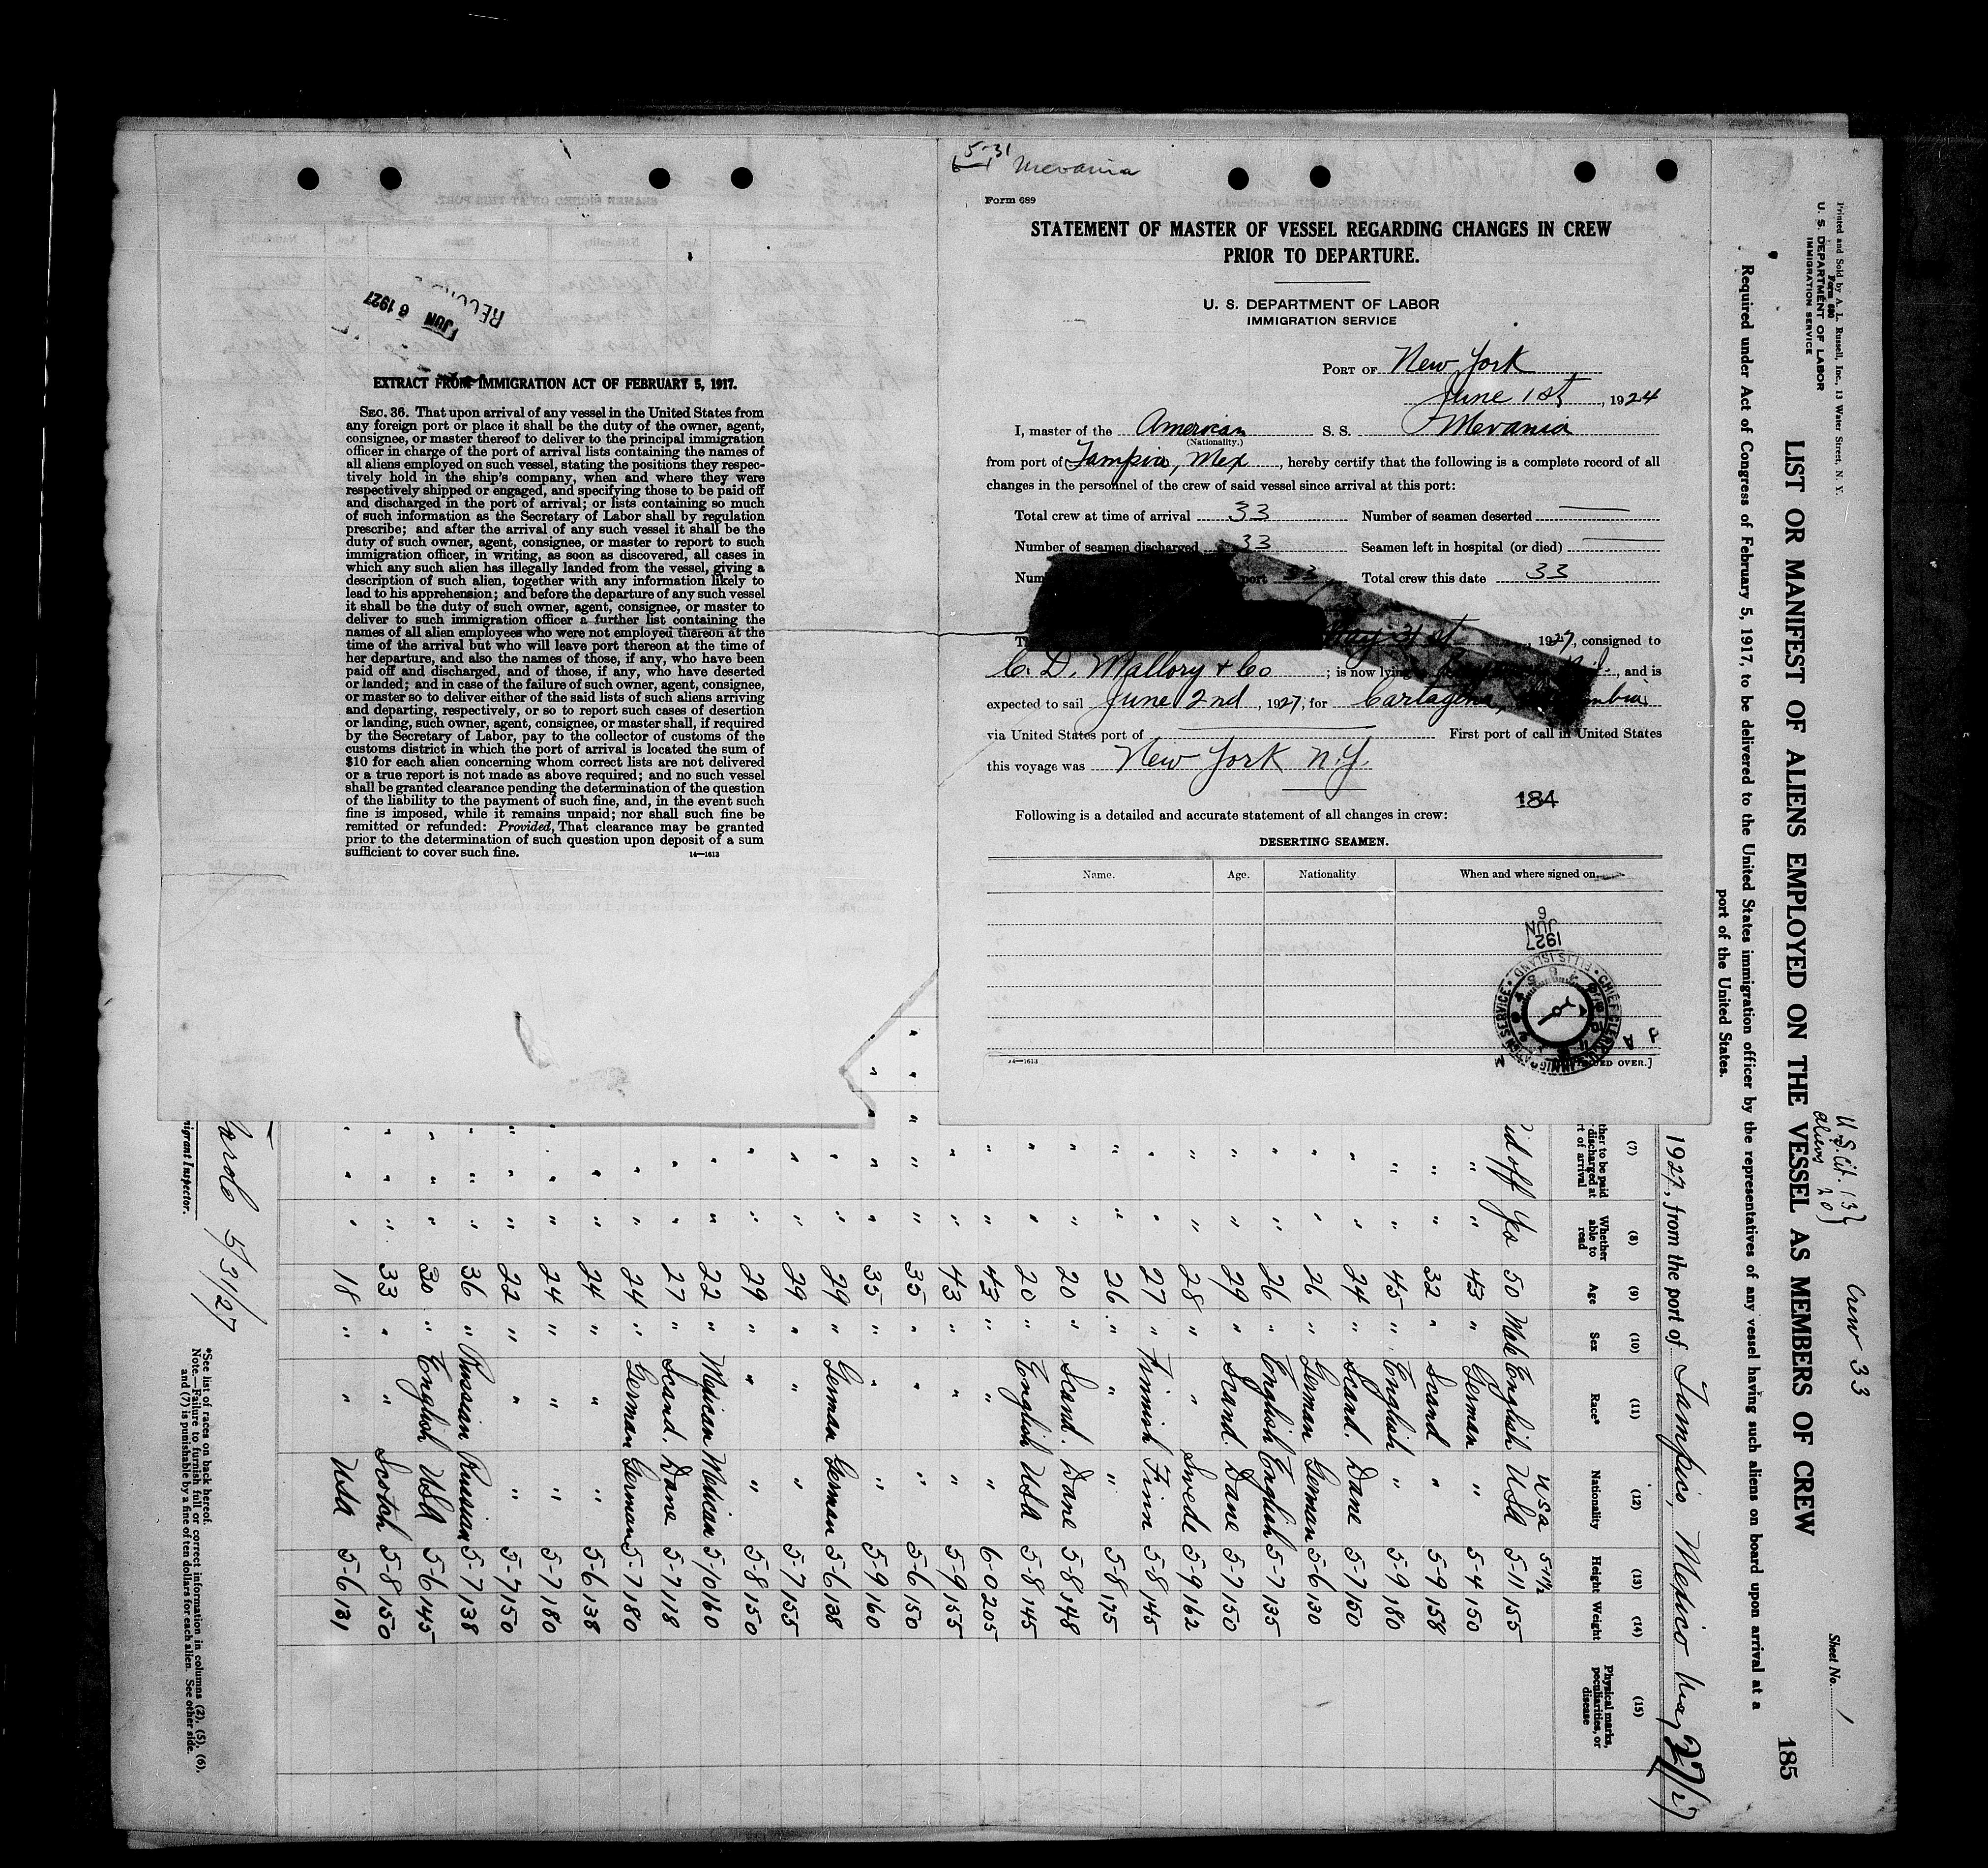 5-31
6-1 Mevania
Form 689
STATEMENT OF MASTER OF VESSEL REGARDING CHANGES IN CREW
PRIOR TO DEPARTURE.
U. S. DEPARTMENT OF LABOR
IMMIGRATION SERVICE
PORT OF New York
June 1st, 1924
I, master of the American S. S. Mevania
(Nationality.)
from port of Tampico, Mex, hereby certify that the following is a complete record of all
changes in the personnel of the crew of said vessel since arrival at this port:
Total crew at time of arrival 33 Number of seamen deserted —
Number of seamen discharged 33 Seamen left in hospital (or died) —
port 33 Total crew this date 33
May 31st, 1927, consigned to
C. D. Mallory & Co; is now lying , and is
expected to sail June 2nd, 1927, for Cartagena,
via United States port of — First port of call in United States
this voyage was New York N.Y.
184
Following is a detailed and accurate statement of all changes in crew:
DESERTING SEAMEN.
Name. Age. Nationality When and where signed on.
6
JUN
1927
CHIEF CLERK'S
ELLIS ISLAND
IMMIGRATION SERVICE
14—1613
OVER.]
JUN 6 1927
EXTRACT FROM IMMIGRATION ACT OF FEBRUARY 5, 1917.
SEC. 36. That upon arrival of any vessel in the United States from
any foreign port or place it shall be the duty of the owner, agent,
consignee, or master thereof to deliver to the principal immigration
officer in charge of the port of arrival lists containing the names of
all aliens employed on such vessel, stating the positions they respec-
tively hold in the ship's company, when and where they were
respectively shipped or engaged, and specifying those to be paid off
and discharged in the port of arrival; or lists containing so much
of such information as the Secretary of Labor shall by regulation
prescribe; and after the arrival of any such vessel it shall be the
duty of such owner, agent, consignee, or master to report to such
immigration officer, in writing, as soon as discovered, all cases in
which any such alien has illegally landed from the vessel, giving a
description of such alien, together with any information likely to
lead to his apprehension; and before the departure of any such vessel
it shall be the duty of such owner, agent, consignee, or master to
deliver to such immigration officer a further list containing the
names of all alien employees who were not employed thereon at the
time of the arrival but who will leave port thereon at the time of
her departure, and also the names of those, if any, who have been
paid off and discharged, and of those, if any, who have deserted
or landed; and in case of the failure of such owner, agent, consignee,
or master so to deliver either of the said lists of such aliens arriving
and departing, respectively, or so to report such cases of desertion
or landing, such owner, agent, consignee, or master shall, if required
by the Secretary of Labor, pay to the collector of customs of the
customs district in which the port of arrival is located the sum of
$10 for each alien concerning whom correct lists are not delivered
or a true report is not made as above required; and no such vessel
shall be granted clearance pending the determination of the question
of the liability to the payment of such fine, and, in the event such
fine is imposed, while it remains unpaid; nor shall such fine be
remitted or refunded: Provided, That clearance may be granted
prior to the determination of such question upon deposit of a sum
sufficient to cover such fine.
14—1613
Printed and Sold by A. L. Russell, Inc., 13 Water Street, N. Y.
Form 680
U. S. DEPARTMENT OF LABOR
IMMIGRATION SERVICE
U.S. Cit. 13
aliens 20
Crew 33
Sheet No. 1
LIST OR MANIFEST OF ALIENS EMPLOYED ON THE VESSEL AS MEMBERS OF CREW
185
Required under Act of Congress of February 5, 1917, to be delivered to the United States immigration officer by the representatives of any vessel having such aliens on board upon arrival at a
port of the United States.
1927, from the port of Tampico, Mexico
(7) (8) (9) (10) (11) (12) (13) (14) (15)
Whether able to read Age Sex Race* Nationality Height Weight Physical marks, peculiarities, or disease
USA 5-11½
off Yes 50 Male English USA 5-11 155
" " 43 " German " 5-4 150
" " 32 " Scand " 5-9 158
" " 45 " English " 5-9 180
" " 24 " Scand. Dane 5-7 150
" " 26 " German German 5-6 130
" " 26 " English English 5-7 135
" " 29 " Scand. Dane 5-7 150
" " 28 " " Swede 5-9 162
" " 27 " Finnish Finn 5-8 145
" " 26 " " " 5-8 175
" " 20 " Scand. Dane 5-8 148
" " 20 " English USA 5-8 145
" " 43 " " " 6-0 205
" " 43 " " " 5-9 155
" " 35 " " " 5-6 150
" " 35 " " " 5-9 160
" " 29 " German German 5-6 138
" " 29 " " " 5-7 155
" " 29 " " " 5-8 150
" " 22 " Mexican Mexican 5-10 160
" " 27 " Scand. Dane 5-7 118
" " 24 " German German 5-7 180
" " 24 " " " 5-6 138
" " 24 " " " 5-7 180
" " 22 " " " 5-7 150
" " 36 " Russian Russian 5-7 138
" " 30 " English USA 5-6 145
" " 33 " " Scotch 5-8 150
" " 18 " " USA 5-6 131
5/31/27
Inspector.
*See list of races on back hereof.
Note.—Failure to furnish full or correct information in columns (2), (5), (6),
and (7) is punishable by a fine of ten dollars for each alien. See other side.